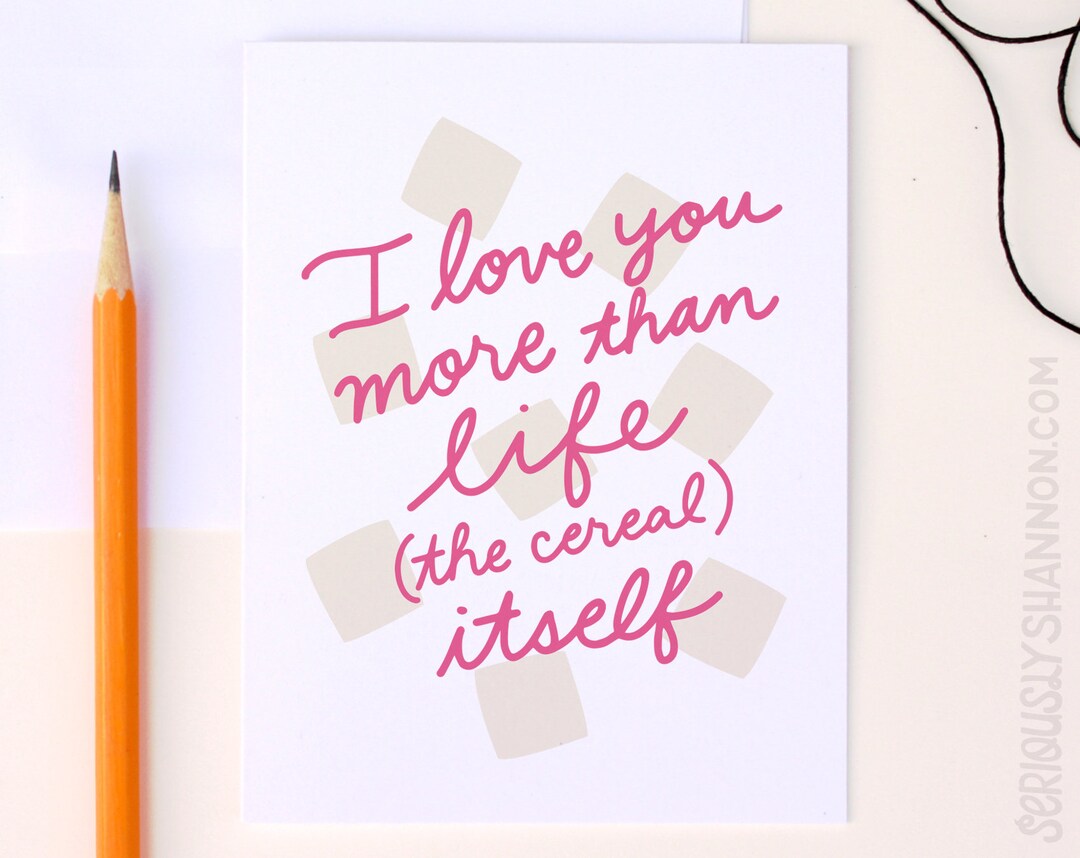 I love you
more than
life
(the cereal)
itself
SERIOUSLYSHANNON.COM